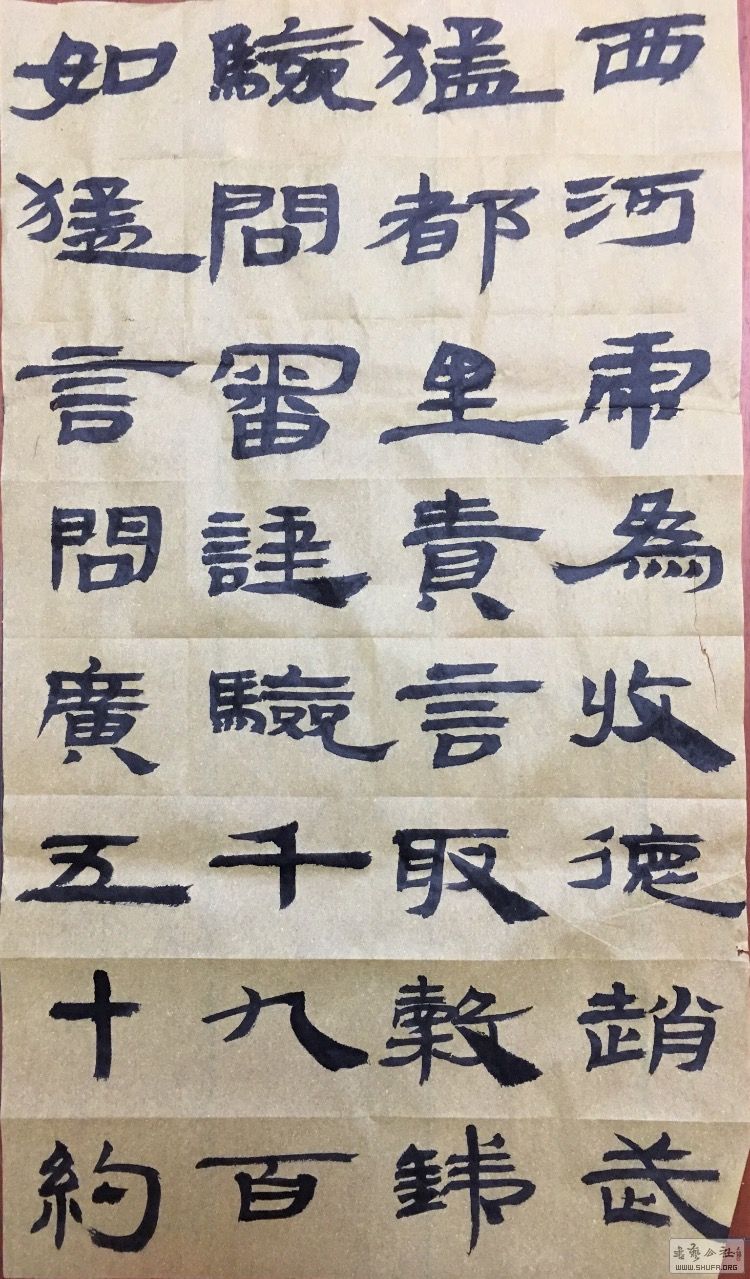 西河為收德趙武
猛都里責言取穀
驗問審驗千九百
如猛言問廣五十約
WWW.SHUFA.ORG